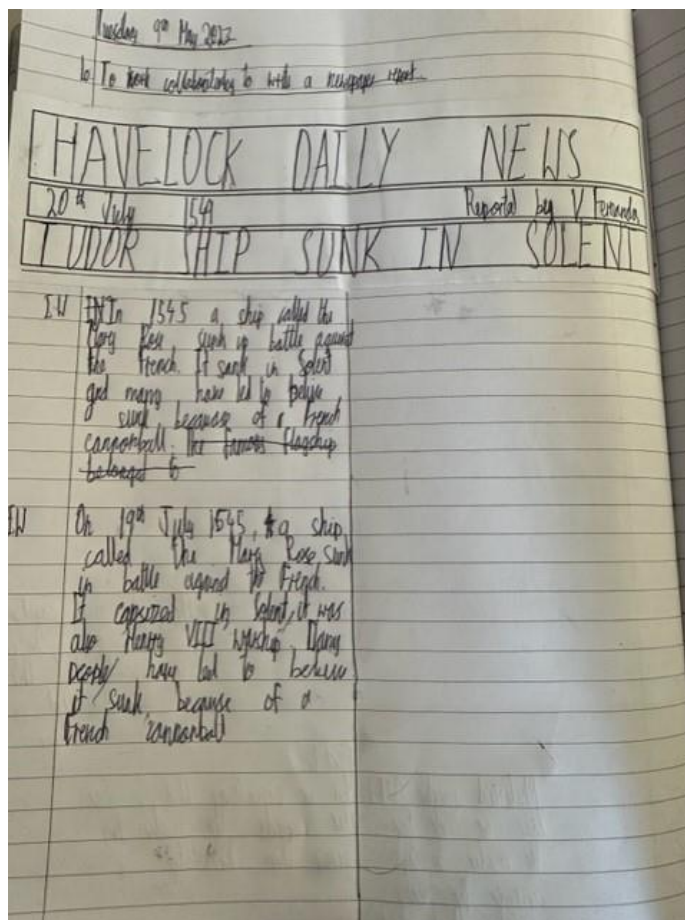 Tuesday 9th May 2022
lo To work collaboratively to write a newspaper report.
HAVELOCK DAILY NEWS
20th July 1549
Reported by V Fernanda
TUDOR SHIP SUNK IN SOLENT
IW In 1545 a ship called the
Mary Rose sunk in battle against
the French. It sank in Solent
and many have led to belive
sunk because of a French
cannonball. The famous flagship
belonged to
IW On 19th July 1545, a ship
called the Mary Rose sunk
in battle against the French.
It capsized in Solent, it was
also Henry VIII warship. Many
people have led to believe
it sunk because of a
French cannonball